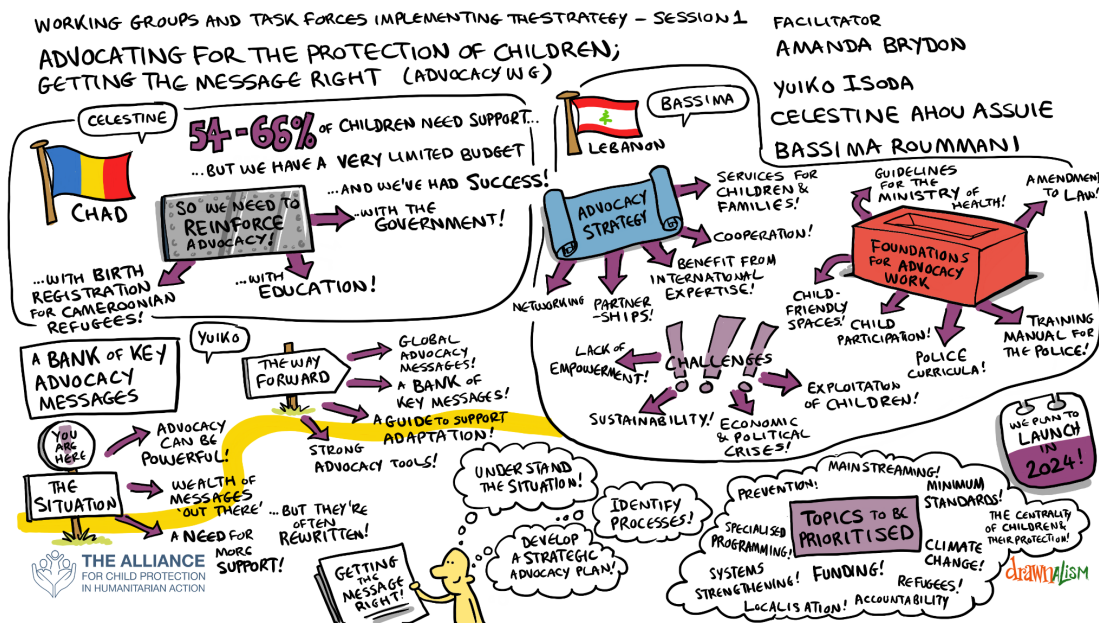 WORKING GROUPS AND TASK FORCES IMPLEMENTING THE STRATEGY - SESSION 1
ADVOCATING FOR THE PROTECTION OF CHILDREN;
GETTING THE MESSAGE RIGHT (ADVOCACY WG)
FACILITATOR
AMANDA BRYDON
YUIKO ISODA
CELESTINE AHOU ASSUIE
BASSIMA ROUMMANI
CELESTINE
CHAD
54-66% OF CHILDREN NEED SUPPORT...
...BUT WE HAVE A VERY LIMITED BUDGET
...AND WE'VE HAD SUCCESS!
SO WE NEED TO
REINFORCE
ADVOCACY!
...WITH THE
GOVERNMENT!
...WITH
EDUCATION!
...WITH BIRTH
REGISTRATION
FOR CAMEROONIAN
REFUGEES!
BASSIMA
LEBANON
ADVOCACY
STRATEGY
SERVICES FOR
CHILDREN &
FAMILIES!
COOPERATION!
BENEFIT FROM
INTERNATIONAL
EXPERTISE!
PARTNER
-SHIPS!
NETWORKING
FOUNDATIONS
FOR ADVOCACY
WORK
GUIDELINES
FOR THE
MINISTRY OF
HEALTH!
AMENDMENT
TO LAW!
CHILD-
FRIENDLY
SPACES!
CHILD
PARTICIPATION!
POLICE
CURRICULA!
TRAINING
MANUAL FOR
THE POLICE!
CHALLENGES
LACK OF
EMPOWERMENT!
SUSTAINABILITY!
ECONOMIC
& POLITICAL
CRISES!
EXPLOITATION
OF CHILDREN!
YUIKO
A BANK OF KEY
ADVOCACY
MESSAGES
YOU
ARE
HERE
THE
SITUATION
ADVOCACY
CAN BE
POWERFUL!
WEALTH OF
MESSAGES
'OUT THERE'
...BUT THEY'RE
OFTEN
REWRITTEN!
A NEED FOR
MORE
SUPPORT!
THE WAY
FORWARD
GLOBAL
ADVOCACY
MESSAGES!
A BANK OF
KEY MESSAGES!
A GUIDE TO SUPPORT
ADAPTATION!
STRONG
ADVOCACY TOOLS!
GETTING
THE
MESSAGE
RIGHT!
UNDERSTAND
THE SITUATION!
IDENTIFY
PROCESSES!
DEVELOP
A STRATEGIC
ADVOCACY PLAN!
TOPICS TO BE
PRIORITISED
MAINSTREAMING!
PREVENTION!
MINIMUM
STANDARDS!
THE CENTRALITY
OF CHILDREN &
THEIR PROTECTION!
SPECIALISED
PROGRAMMING!
CLIMATE
CHANGE!
SYSTEMS
STRENGTHENING!
FUNDING!
REFUGEES!
LOCALISATION!
ACCOUNTABILITY
WE PLAN TO
LAUNCH
IN
2024!
THE ALLIANCE
FOR CHILD PROTECTION
IN HUMANITARIAN ACTION
drawnalism